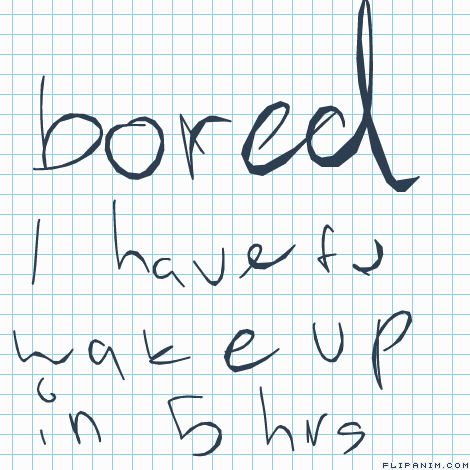 bored
I have to
wake up
in 5 hrs
FLIPANIM.COM